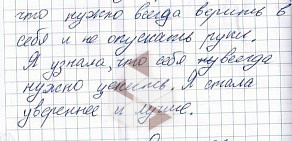 что нужно всегда верить в
себя и не опускать руки.
Я узнала, что себя всегда
нужно ценить. Я стала
увереннее и лучше.